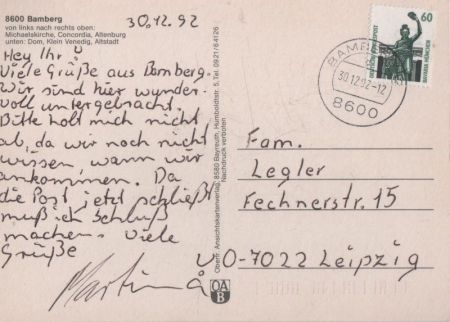 8600 Bamberg
von links nach rechts oben:
Michaelskirche, Concordia, Altenburg
unten: Dom, Klein Venedig, Altstadt
30.12.92
Hey Ihr
Viele Grüße aus Bamberg.
Wir sind hier wunder-
voll untergebracht.
Bitte holt mich nicht
ab, da wir noch nicht
wissen wann wir
ankommen. Da
die Post jetzt schließt
muß ich Schluß
machen. Viele
Grüße
Martin
Oberfr. Ansichtskartenverlag, 8580 Bayreuth, Humboldtstr. 5, Tel. 0921/64126
Nachdruck verboten
OA
B
60
DEUTSCHE BUNDESPOST
BAVARIA MÜNCHEN
BAMBERG
30.12.92-12
8600
Fam.
Legler
Fechnerstr. 15
O-7022 Leipzig